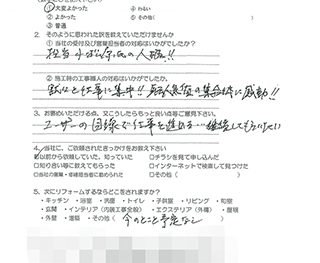 ①大変よかった ④わるい
②よかった ⑤その他( )
③普通
2. そのように思われた訳を教えていただけませんか
① 当社の受付及び営業担当者の対応はいかがでしたか?
担当 の人柄!!
② 施工時の工事職人の対応はいかがでしたか。
仕事に集中!! の集合体に感動!!
3. お褒めいただける点、又こうしたらもっと良い点等ご意見下さい。
ユーザーの目線で仕事を進める…継続してもらいたい
4. 当社に、ご依頼されたきっかけをお教え下さい
☑以前から依頼していた、知っていた □チラシを見て申し込んだ
□知り合い等に教えてもらった □インターネットで検索して見つけた
□当社の営業・修繕担当者に勧められた □その他( )
5. 次にリフォームするならどこをされますか?
・キッチン ・浴室 ・洗面 ・トイレ ・子供室 ・リビング ・和室
・玄関 ・インテリア(内装工事全般) ・エクステリア(外構) ・屋根
・外壁 ・増築 ・その他( 今のところ予定なし )